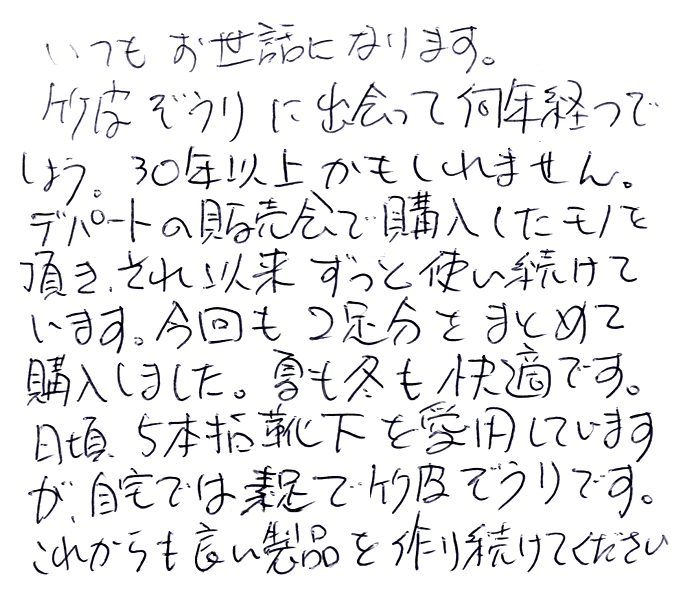 いつもお世話になります。
竹皮ぞうりに出会って何年経つで
しょう。30年以上かもしれません。
デパートの販売会で購入したモノを
頂き、それ以来ずっと使い続けて
います。今回も2足分をまとめて
購入しました。夏も冬も快適です。
日頃、5本指靴下を愛用しています
が、自宅では素足で竹皮ぞうりです。
これからも良い製品を作り続けてください